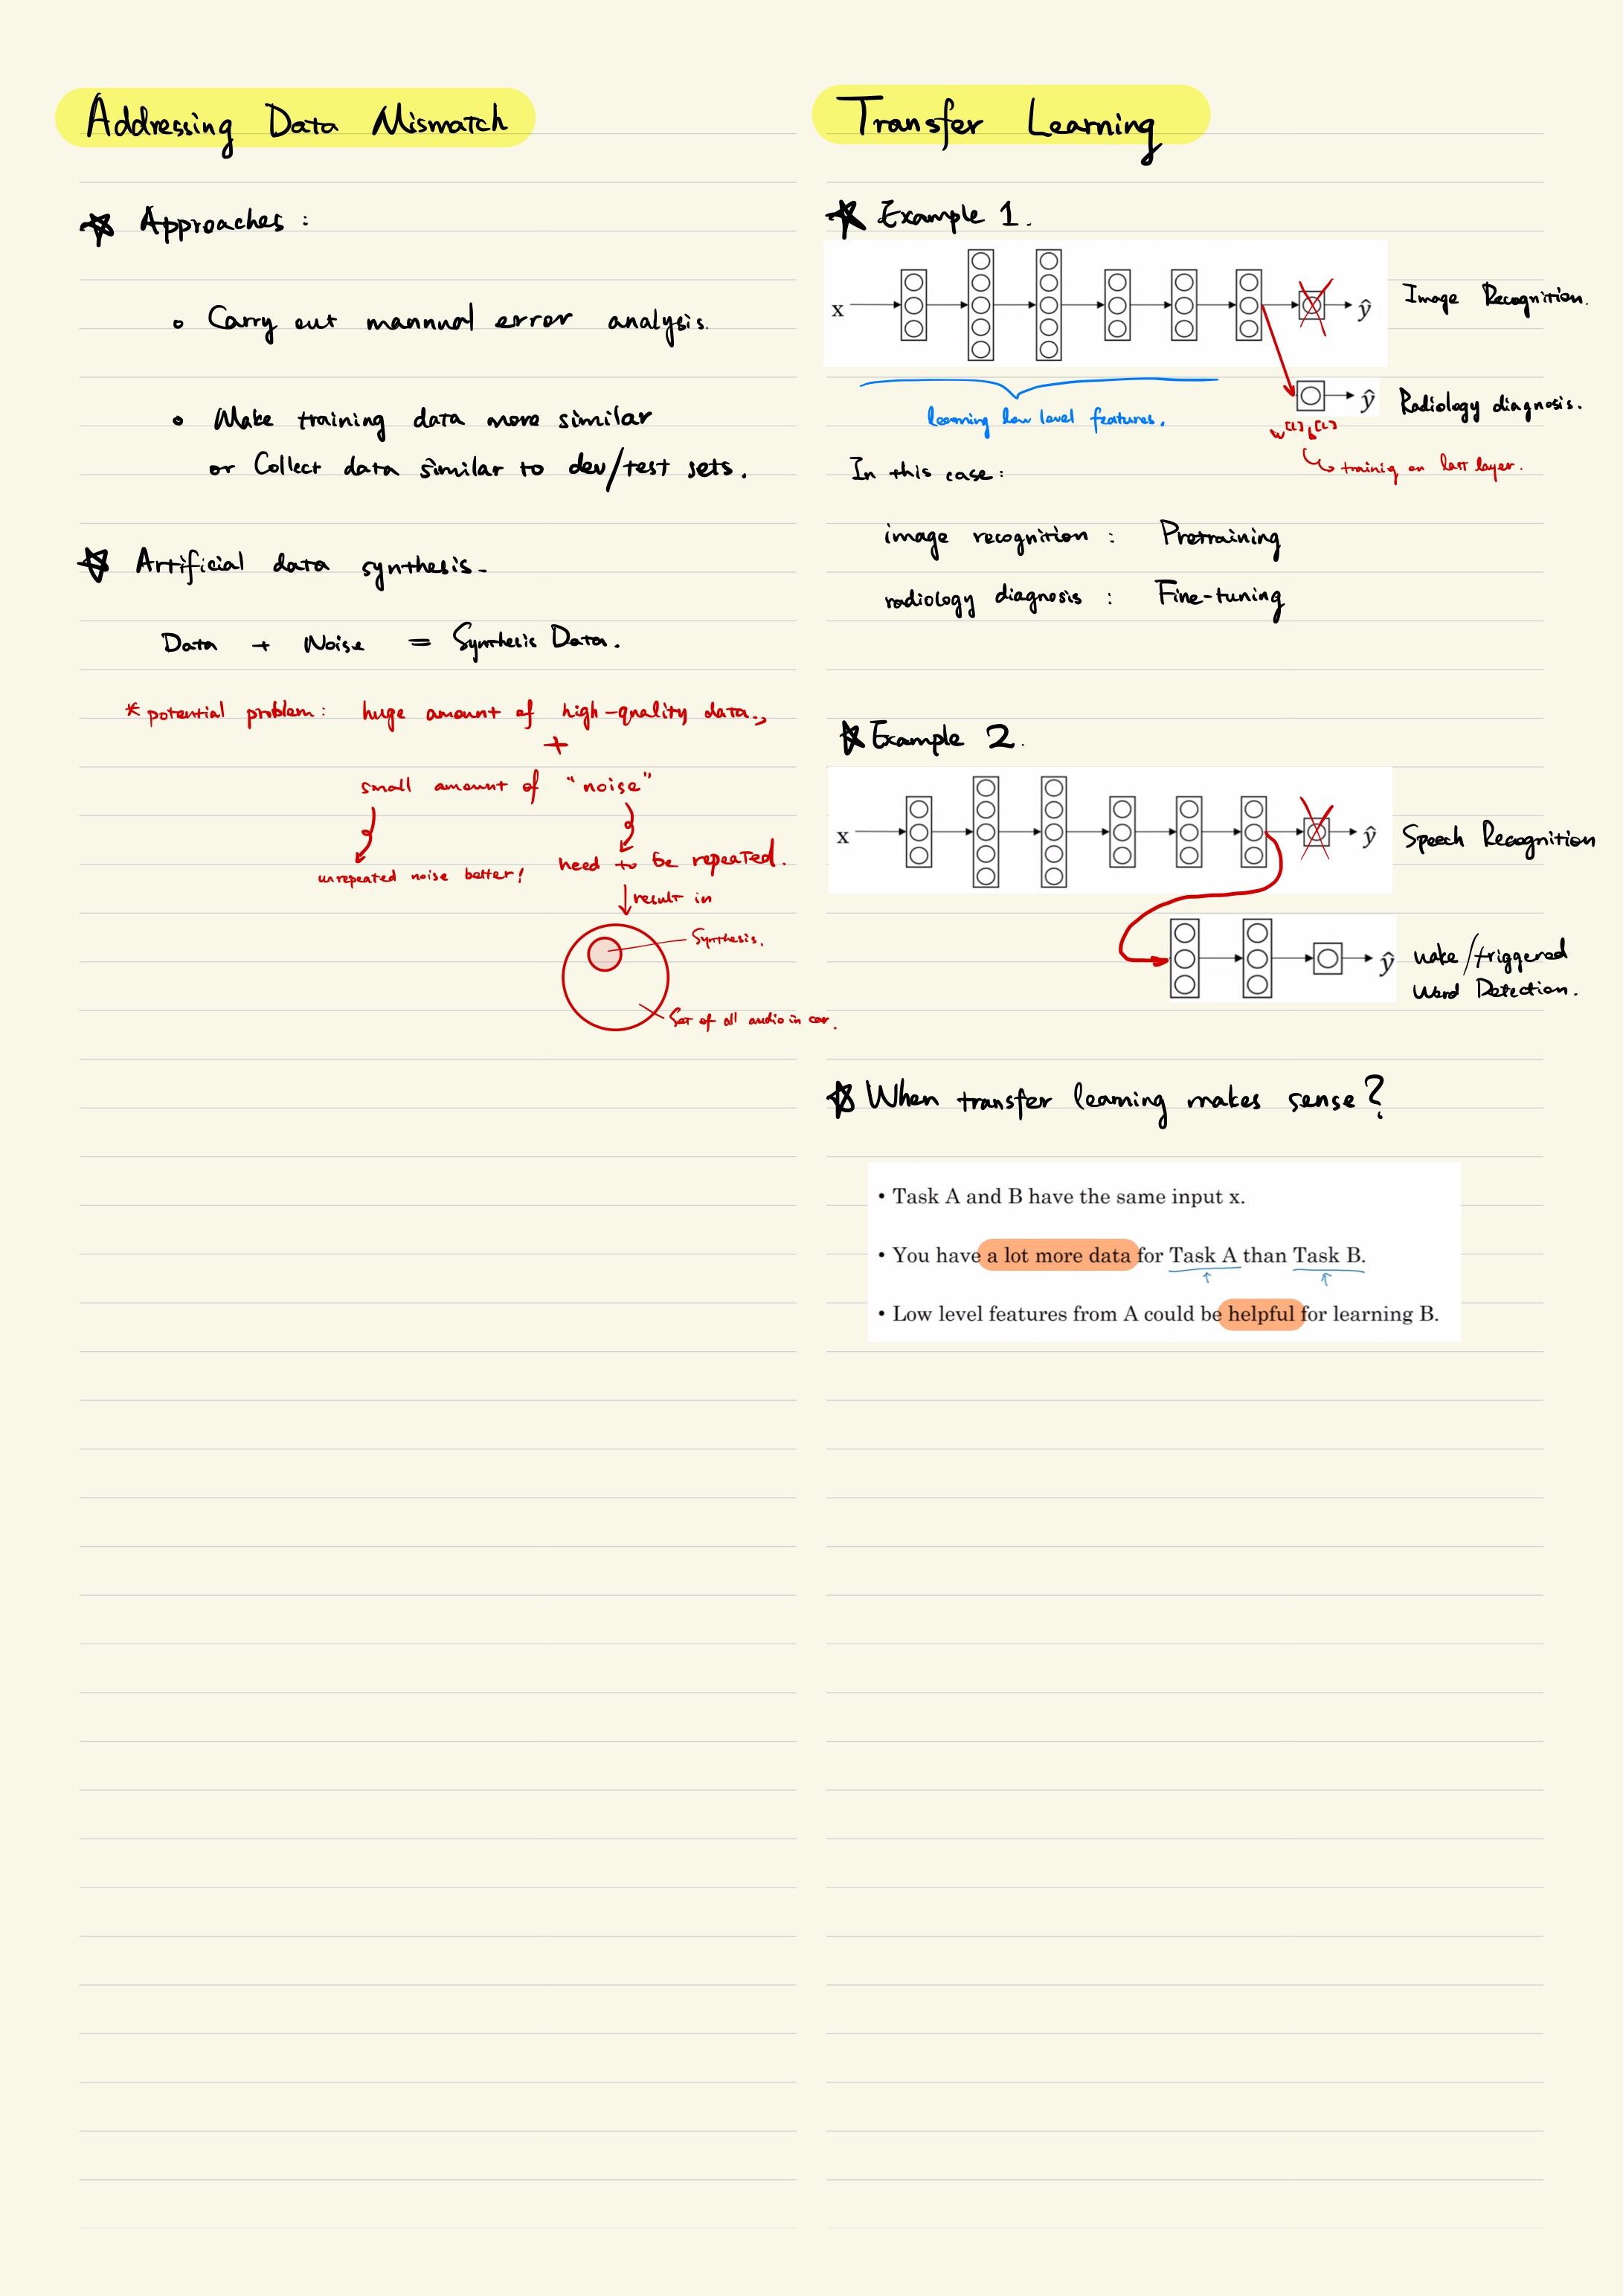 Addressing Data Mismatch
Approaches :
Carry out mannual error analysis.
Make training data more similar
or Collect data similar to dev/test sets.
Artificial data synthesis.
Data + Noise = Synthesis Data.
* potential problem : huge amount of high-quality data.,
+
small amount of "noise"
unrepeated noise better!
need to be repeated.
result in
Synthesis.
Set of all audio in car.
Transfer Learning
Example 1.
x ŷ
Image Recognition.
ŷ
Radiology diagnosis.
learning low level features.
w[L] b[L]
trainig on last layer.
In this case :
image recognition : Pretraining
radiology diagnosis : Fine-tuning
Example 2.
x ŷ
Speech Recognition
ŷ
wake/triggered
Word Detection.
When transfer learning makes sense?
• Task A and B have the same input x.
• You have a lot more data for Task A than Task B.
• Low level features from A could be helpful for learning B.